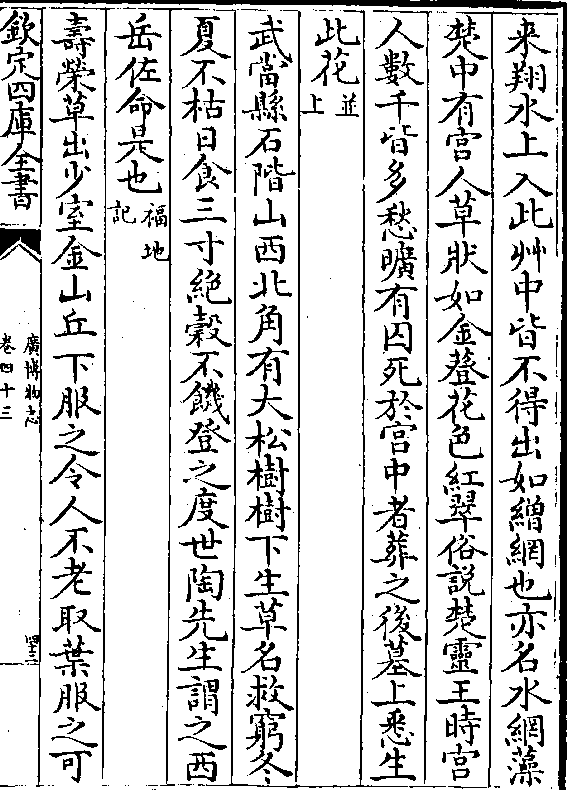 来翔水上入此艸中皆不得出如繒網也亦名水網藻
楚中有宫人草狀如金䔲花色紅翠俗說楚靈王時宫
人數千皆多愁曠有囚死於宫中者葬之後墓上悉生
此花並上
武當縣石階山西北角有大松樹樹下生草名救窮冬
夏不枯日食三寸絶穀不饑登之度世陶先生謂之西
岳佐命是也福地記
壽榮草出少室金山丘下服之令人不老取葉服之可
欽定四庫全書
廣博物志
卷四十三